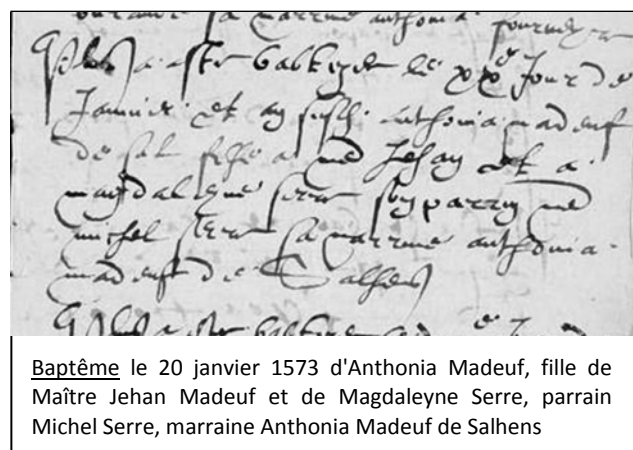 sa marrine anthonia fourneyre
a estr baptizee le xx^e Jour de
Janvier et an susd. anthonia madeuf
de sal filhe a me Jehan et a
magdaleyne serr son parrin me
michel serr sa marrine anthonia
madeuf de Salhens
Baptême le 20 janvier 1573 d'Anthonia Madeuf, fille de
Maître Jehan Madeuf et de Magdaleyne Serre, parrain
Michel Serre, marraine Anthonia Madeuf de Salhens